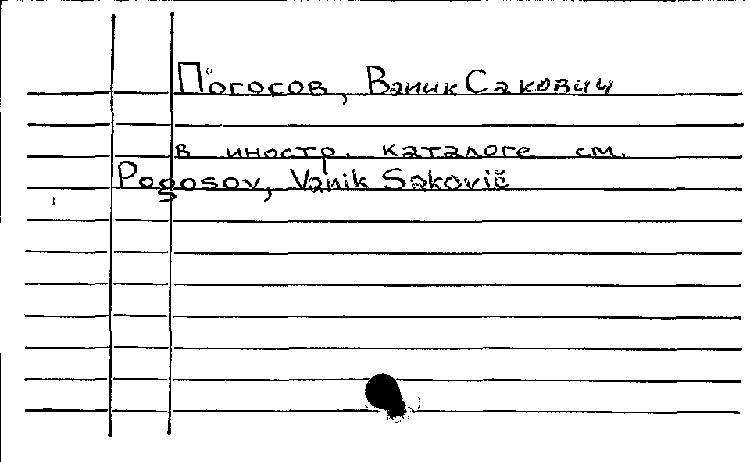 Погосов, Ваник Сакович
в иностр. каталоге см.
Pogosov, Vanik Sakovič